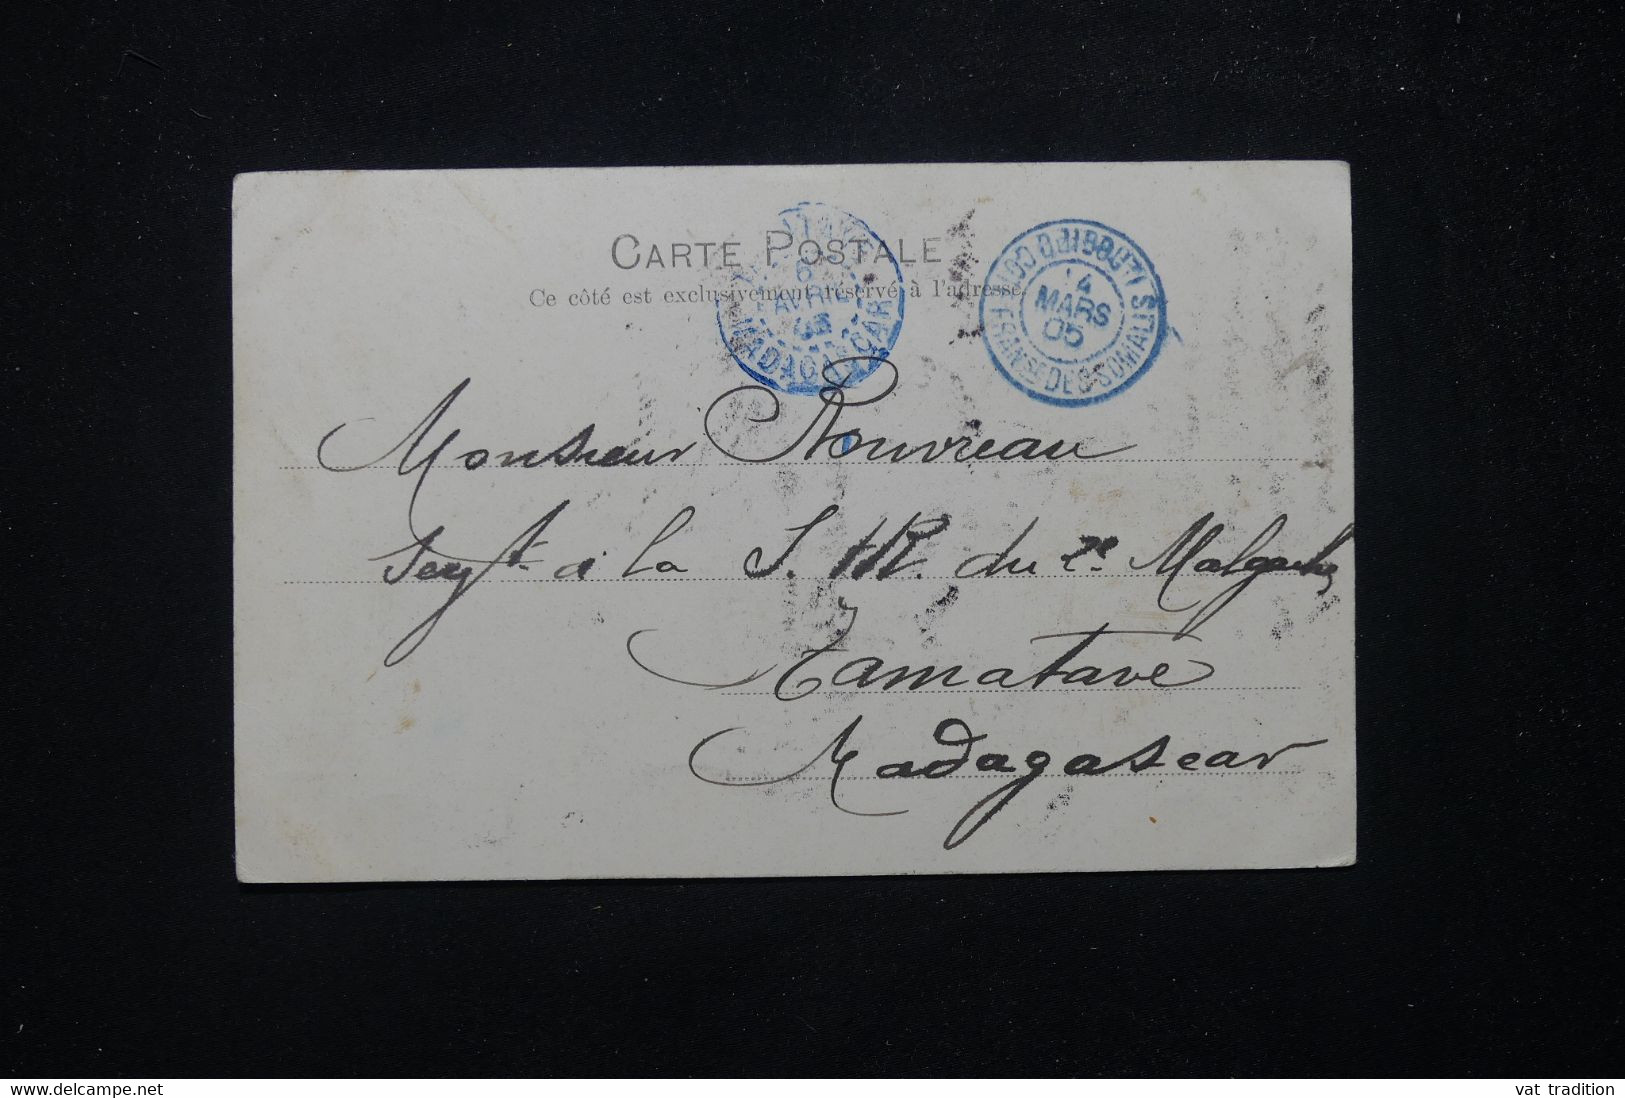 CARTE POSTALE
Ce côté est exclusivement réservé à l'adresse.
TAMATAVE
6
AVRIL
05
MADAGASCAR
DJIBOUTI
14
MARS
05
COTE FRANSE DES SOMALIS
Monsieur Rouvreau
Serg.t à la S. H. R. du 2e Malgache
Tamatave
Madagascar
www.delcampe.net
vat tradition